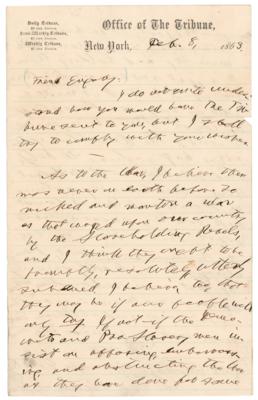 Daily Tribune,
Semi-Weekly Tribune,
Weekly Tribune,
Office of The Tribune,
New York, Feb. 8, 1863
Friend
I do not quite under-
stand how you would have the Tri-
bune sent to you, but I shall
try to comply with your wishes.
As to the War, I believe there
was never on earth before so
wicked and wanton a war
as that waged upon our country
by the Slaveholding Rebels,
and I think they ought to be
promptly, resolutely, utterly
subdued. I believe too that
they may be if our people
say so, if not if the
and Pro-Slavery men in-
sist on opposing, embarrass-
ing and obstructing the
as they have done for some